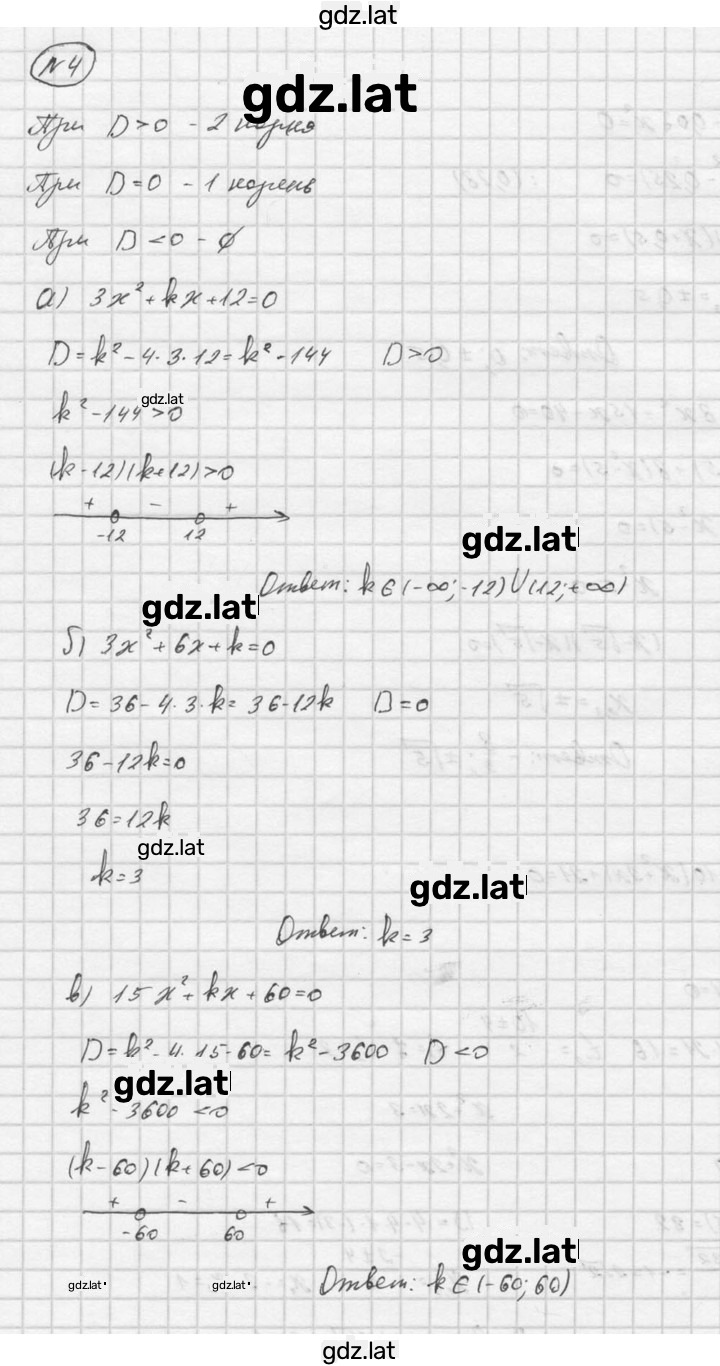 gdz.lat
N4
gdz.lat
При D>0 - 2 корня
При D=0 - 1 корень
При D<0 - ∅
а) 3x²+kx+12=0
D=k²-4·3·12=k²-144 D>0
gdz.lat
k²-144>0
(k-12)(k+12)>0
+ - +
-12 12
gdz.lat
Ответ: k∈(-∞;-12)∪(12;+∞)
gdz.lat
б) 3x²+6x+k=0
D=36-4·3·k=36-12k D=0
36-12k=0
36=12k
gdz.lat
k=3
gdz.lat
Ответ: k=3
в) 15x²+kx+60=0
D=k²-4·15·60=k²-3600 D<0
gdz.lat
k²-3600<0
(k-60)(k+60)<0
+ - +
-60 60
gdz.lat
gdz.lat gdz.lat Ответ: k∈(-60;60)
gdz.lat